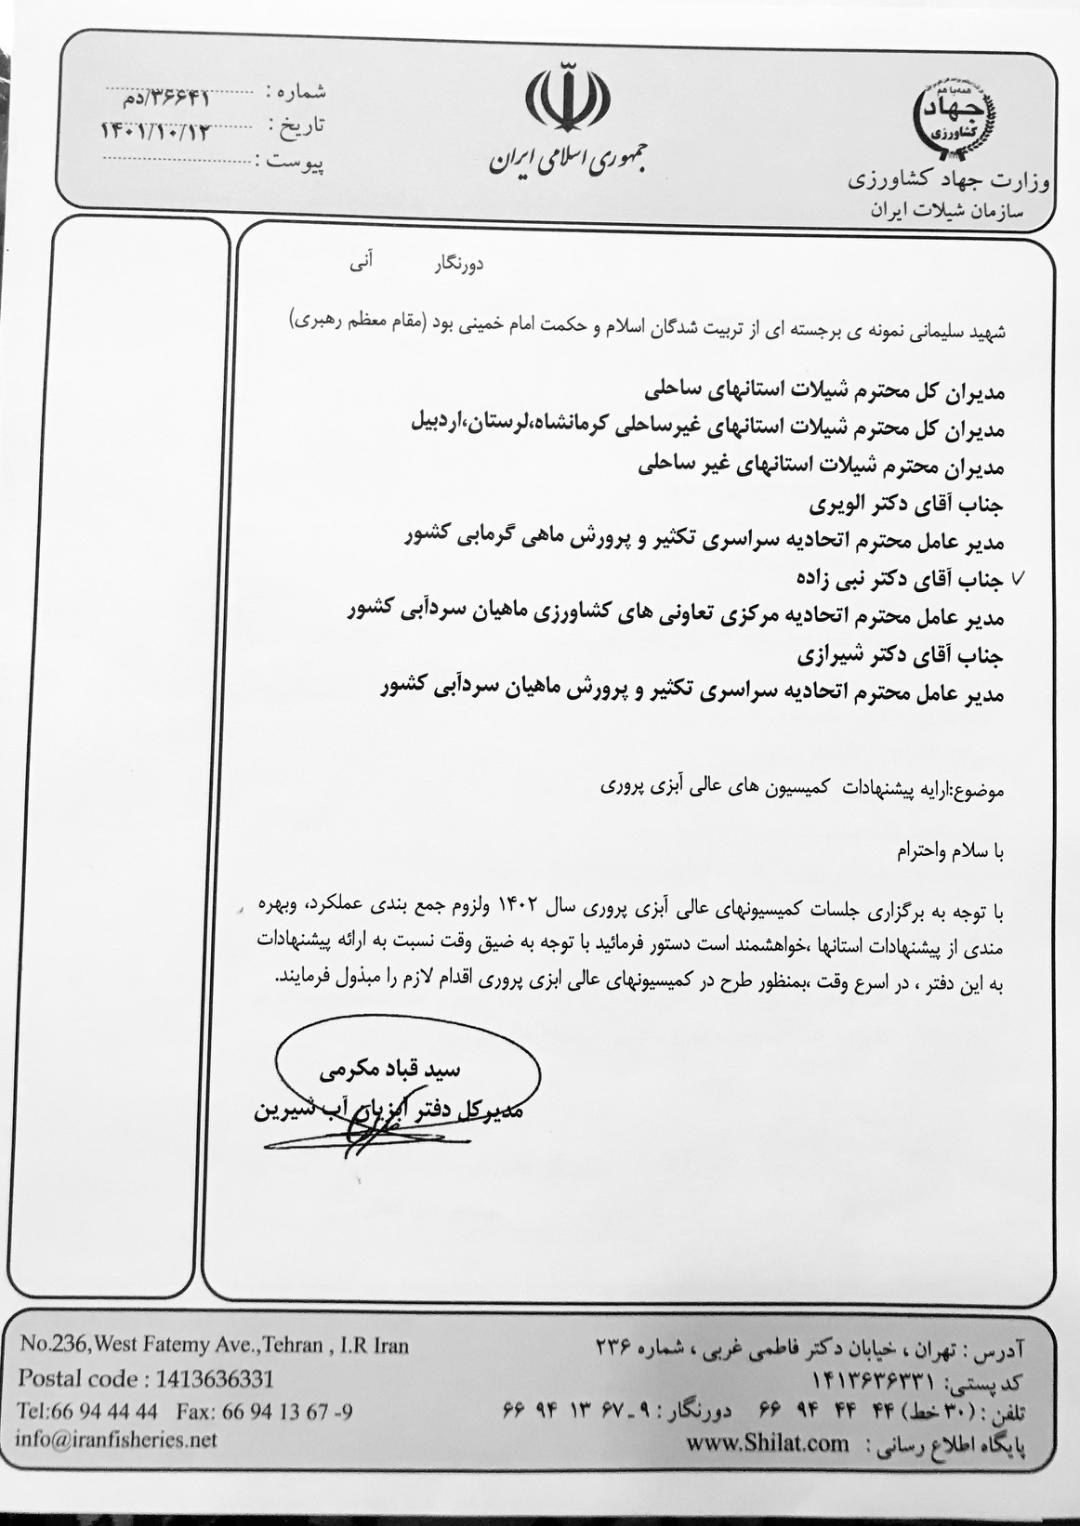 همه با هم
جهاد
کشاورزی
وزارت جهاد کشاورزی
سازمان شیلات ایران
جمهوری اسلامی ایران
شماره : ۳۶۶۴۱/دم
تاریخ : ۱۴۰۱/۱۰/۱۲
پیوست :
دورنگار آنی
شهید سلیمانی نمونه ی برجسته ای از تربیت شدگان اسلام و حکمت امام خمینی بود (مقام معظم رهبری)
مدیران کل محترم شیلات استانهای ساحلی
مدیران کل محترم شیلات استانهای غیرساحلی کرمانشاه،لرستان،اردبیل
مدیران محترم شیلات استانهای غیر ساحلی
جناب آقای دکتر الویری
مدیر عامل محترم اتحادیه سراسری تکثیر و پرورش ماهی گرمابی کشور
✓ جناب آقای دکتر نبی زاده
مدیر عامل محترم اتحادیه مرکزی تعاونی های کشاورزی ماهیان سردآبی کشور
جناب آقای دکتر شیرازی
مدیر عامل محترم اتحادیه سراسری تکثیر و پرورش ماهیان سردآبی کشور
موضوع:ارایه پیشنهادات کمیسیون های عالی آبزی پروری
با سلام واحترام
با توجه به برگزاری جلسات کمیسیونهای عالی آبزی پروری سال ۱۴۰۲ ولزوم جمع بندی عملکرد، وبهره
مندی از پیشنهادات استانها ،خواهشمند است دستور فرمائید با توجه به ضیق وقت نسبت به ارائه پیشنهادات
به این دفتر ، در اسرع وقت ،بمنظور طرح در کمیسیونهای عالی ابزی پروری اقدام لازم را مبذول فرمایند.
سید قباد مکرمی
مدیرکل دفتر ابزیان آب شیرین
آدرس : تهران ، خیابان دکتر فاطمی غربی ، شماره ۲۳۶
کد پستی: ۱۴۱۳۶۳۶۳۳۱
تلفن : (۳۰ خط) ۴۴ ۴۴ ۹۴ ۶۶ دورنگار : ۹-۶۷ ۱۳ ۹۴ ۶۶
پایگاه اطلاع رسانی : www.Shilat.com
No.236,West Fatemy Ave.,Tehran , I.R Iran
Postal code : 1413636331
Tel:66 94 44 44 Fax: 66 94 13 67 -9
info@iranfisheries.net